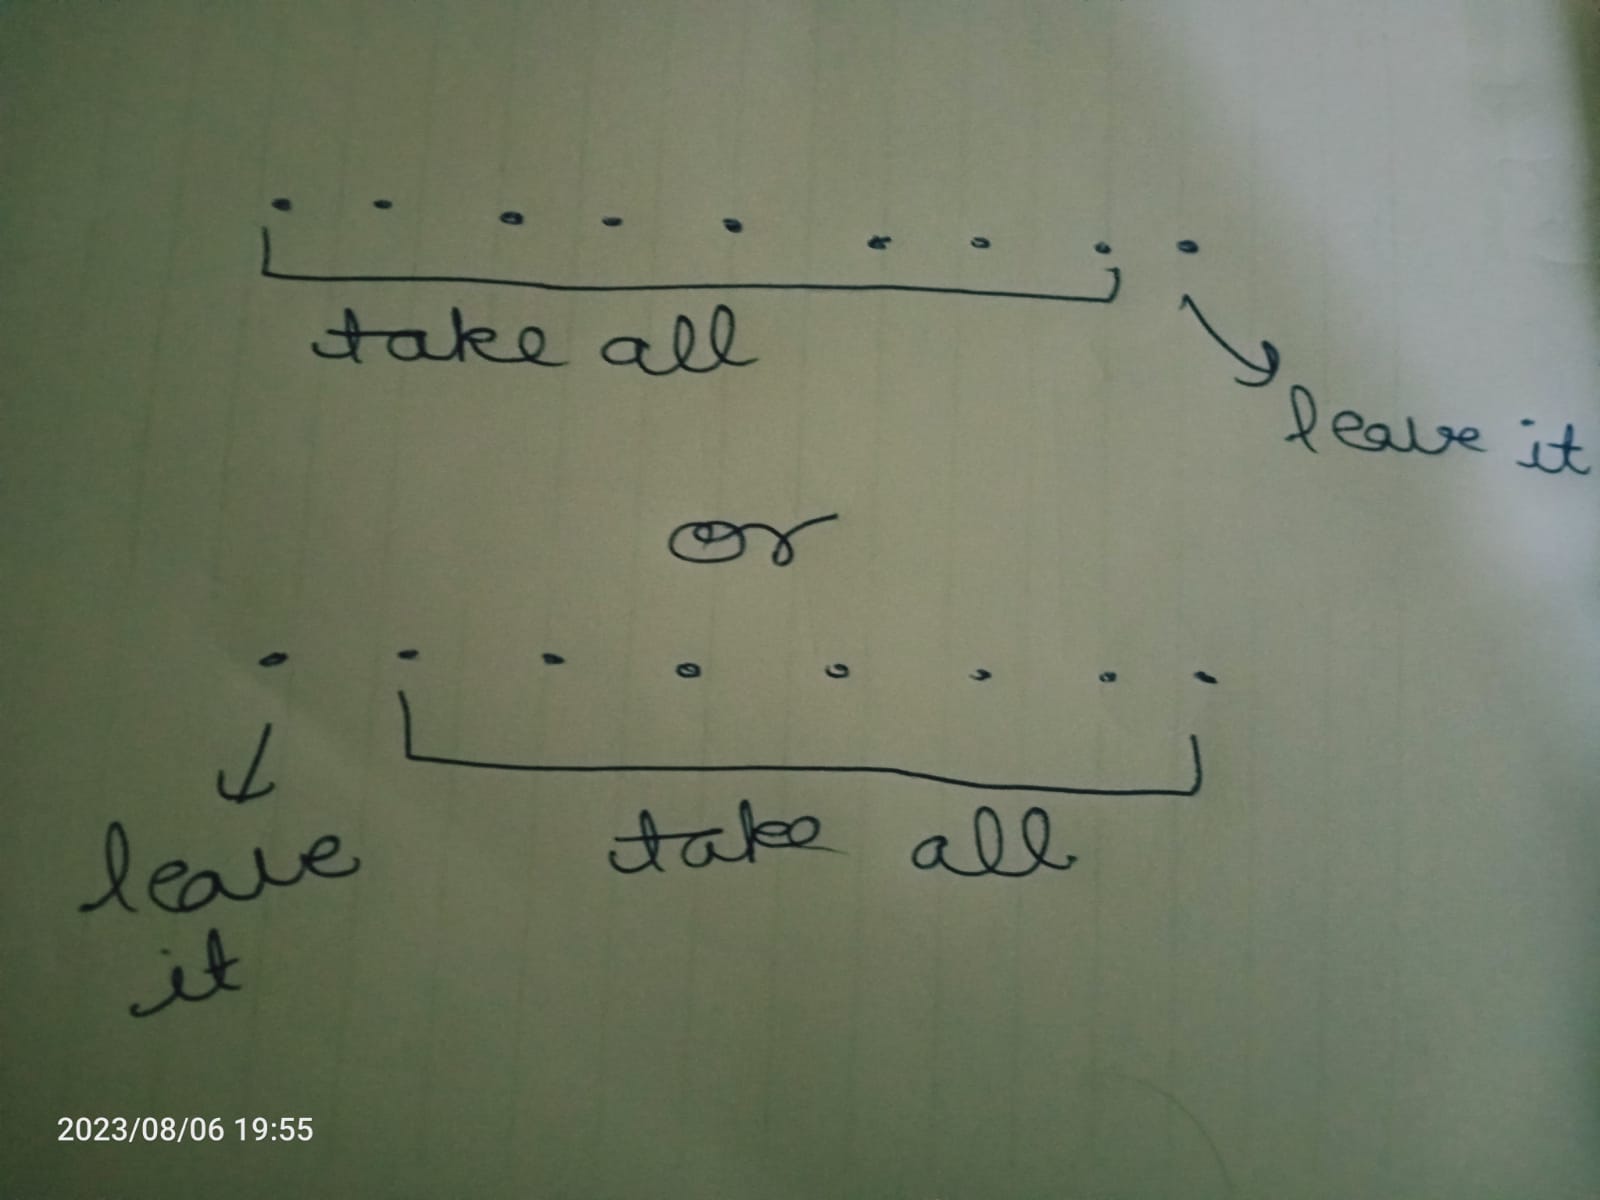 take all
leave it
or
leave
it
take all
2023/08/06 19:55